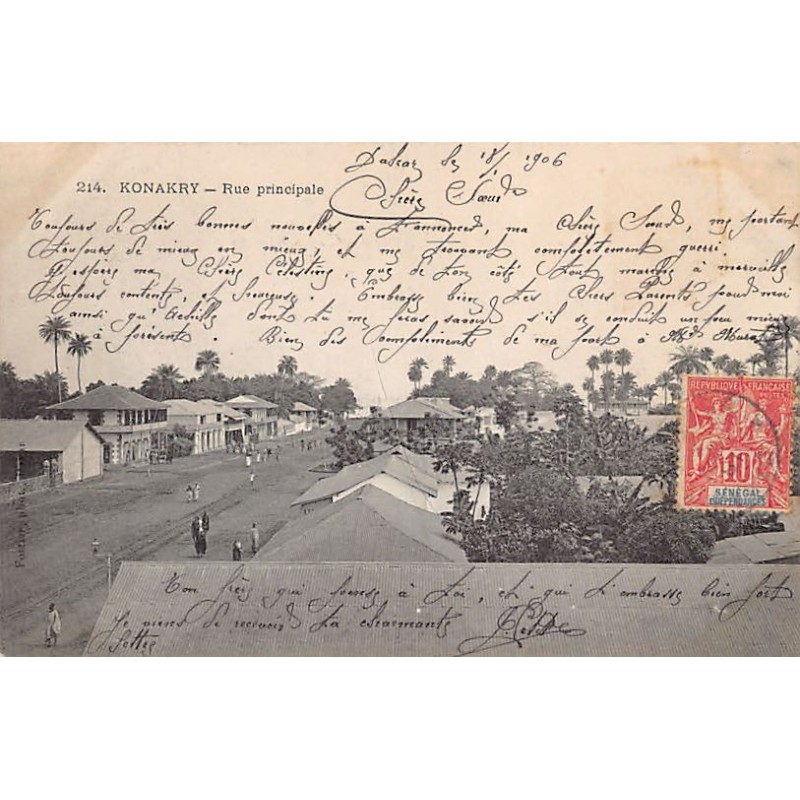 Dakar le 18/1 1906
214. KONAKRY — Rue principale
Chère Sœur
Toujours de très bonnes nouvelles à t'annoncer, ma Chère Sœur, me portant
toujours de mieux en mieux, et me trouvant complètement guéri.
J'espère ma Chère Célestine, que de ton côté tout marche à merveille
Toujours contente, et heureuse. Embrasse bien tes Chers Parents pour moi
ainsi qu' dont tu me feras savoir s'il se conduit un peu mieux
à présent. Bien des Compliments de ma part à Mr
REPUBLIQUE FRANÇAISE
POSTES
10
SÉNÉGAL
ET DÉPENDANCES
Fortier, phot.
Ton frère qui pense à toi, et qui t'embrasse bien fort
Je viens de recevoir ta charmante
lettre